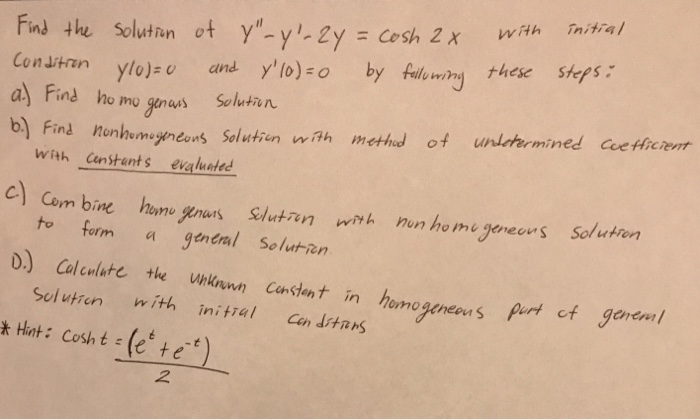 Find the Solution of y"-y'-2y = cosh 2x with initial
Condition y(0)=0 and y'(0)=0 by following these steps:
a.) Find homogenous Solution
b.) Find nonhomogeneous Solution with method of undetermined Coefficient
with Constants evaluated
c.) Combine homogenous Solution with nonhomogeneous Solution
to form a general Solution.
D.) Calculate the unknown Constant in homogeneous part of general
Solution with initial Conditions
* Hint: Cosh t = (e^t + e^-t)
2